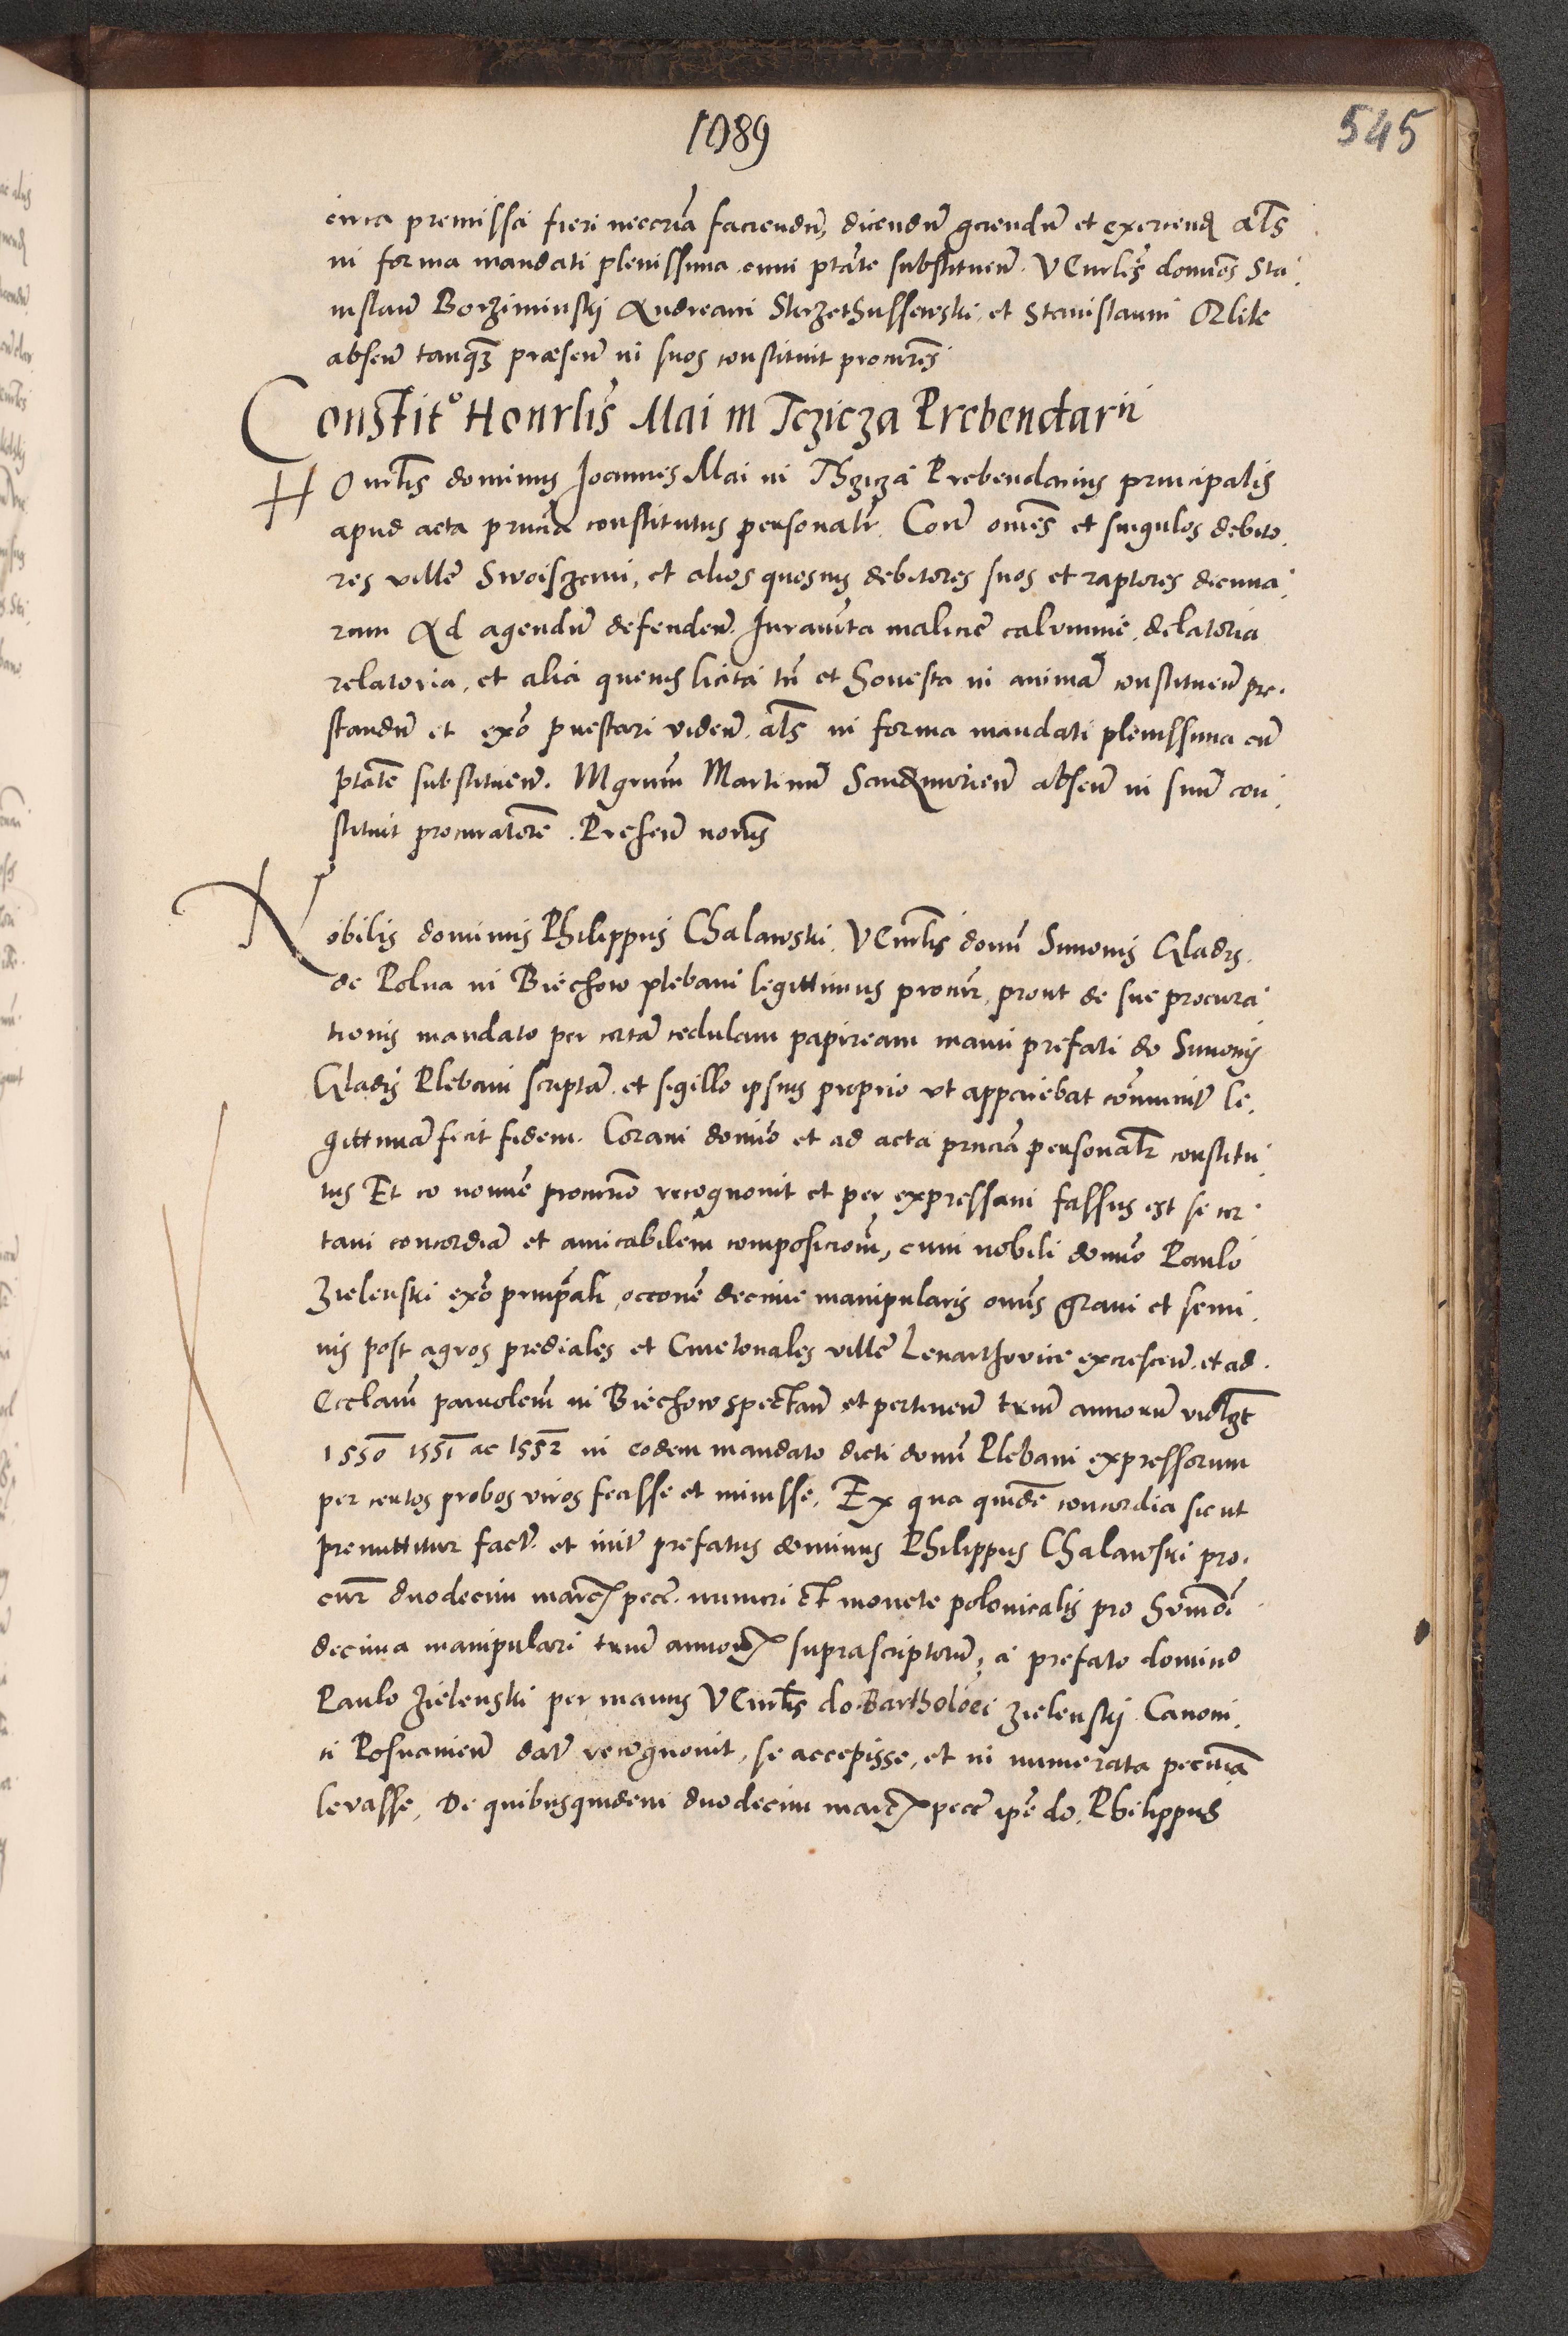 1089
545
circa premissa fieri neccria faciendũ, dicendũ gerendũ et exercend als
in forma mandati plenissima cum ptãte substituen̄. VEnrles domĩos Sta
nislaũ Borziminskj Andream Skrzethussewski, et Stanislaum Orlik
absen̄ tanq̃ presen̄ in suos constituit procures
Constit° Honrlis Mai in Tczicza Prebendarii
HOnrlis dominus Joannes Mai in Thcziczã Prebendarius principalis
apud acta prncia constitutus personalr. Contr omes et singulos debito
res ville Swoisczemi, et alios quosuis debitores suos et raptores decima
rum Ad agendũ defenden̄. Juramta malicie calumnie, delatoria
relatoria, et alia queuis licita tn̄ et honesta in animã constituen̄ pre
standũ et exõ prestari viden̄. als in forma mandati plenissima cũ
ptãte substituen̄. Mgrum Martinũ Sandmirien̄ absen̄ in suũ con
stituit procuratorẽ. Presen̄ notris
Nobilis dominus Philippus Chalawski, VEnrlis domi Simonis Gladis
de Polna in Biechow plebani legittimus procur, prout de sue procura
tionis mandato per certã cedulam papiream manu prefati do Simonis
Gladis Plebani scriptã, et sigillo ipsius proprio vt apparebat cõmunit le
gittimã fecit fidem. Coram domĩo et ad acta prncia personalr constitu
tus Et eo nomĩe procurio recognouit et per expressam fassus est se cer
tam concordiã et amicabilem composiciom, cum nobili domĩo Paulo
Zielenski exõ prnpali, occone decime manipularis omis grani et semi
nis post agros prediales et Cmetonales ville Lenarthowice excrescen̄. et ad
Ecclam parrolem in Biechow spectan̄ et pertinen̄ triũ annorũ vidlzt
1550 1551 ac 1552 in eodem mandato dicti domi Plebani expressorum
per certos probos viros fecisse et inisse, Ex qua quidẽ concordia sicut
premittitur fact. et init prefatus dominus Philippus Chalawski pro
cur duodecim marc pecc. numeri et monete polonicalis pro hmõi
decima manipulari triũ annor suprascriptorũ, a prefato domino
Paulo Zielenski per manus VEnrlis do Bartholoei Zielenskj Canoni
ci Posnanien̄ dat recognouit, se accepisse, et in numerata pecunia
leuasse, De quibusquidem duodecim marc pecc ipse do. Philippus